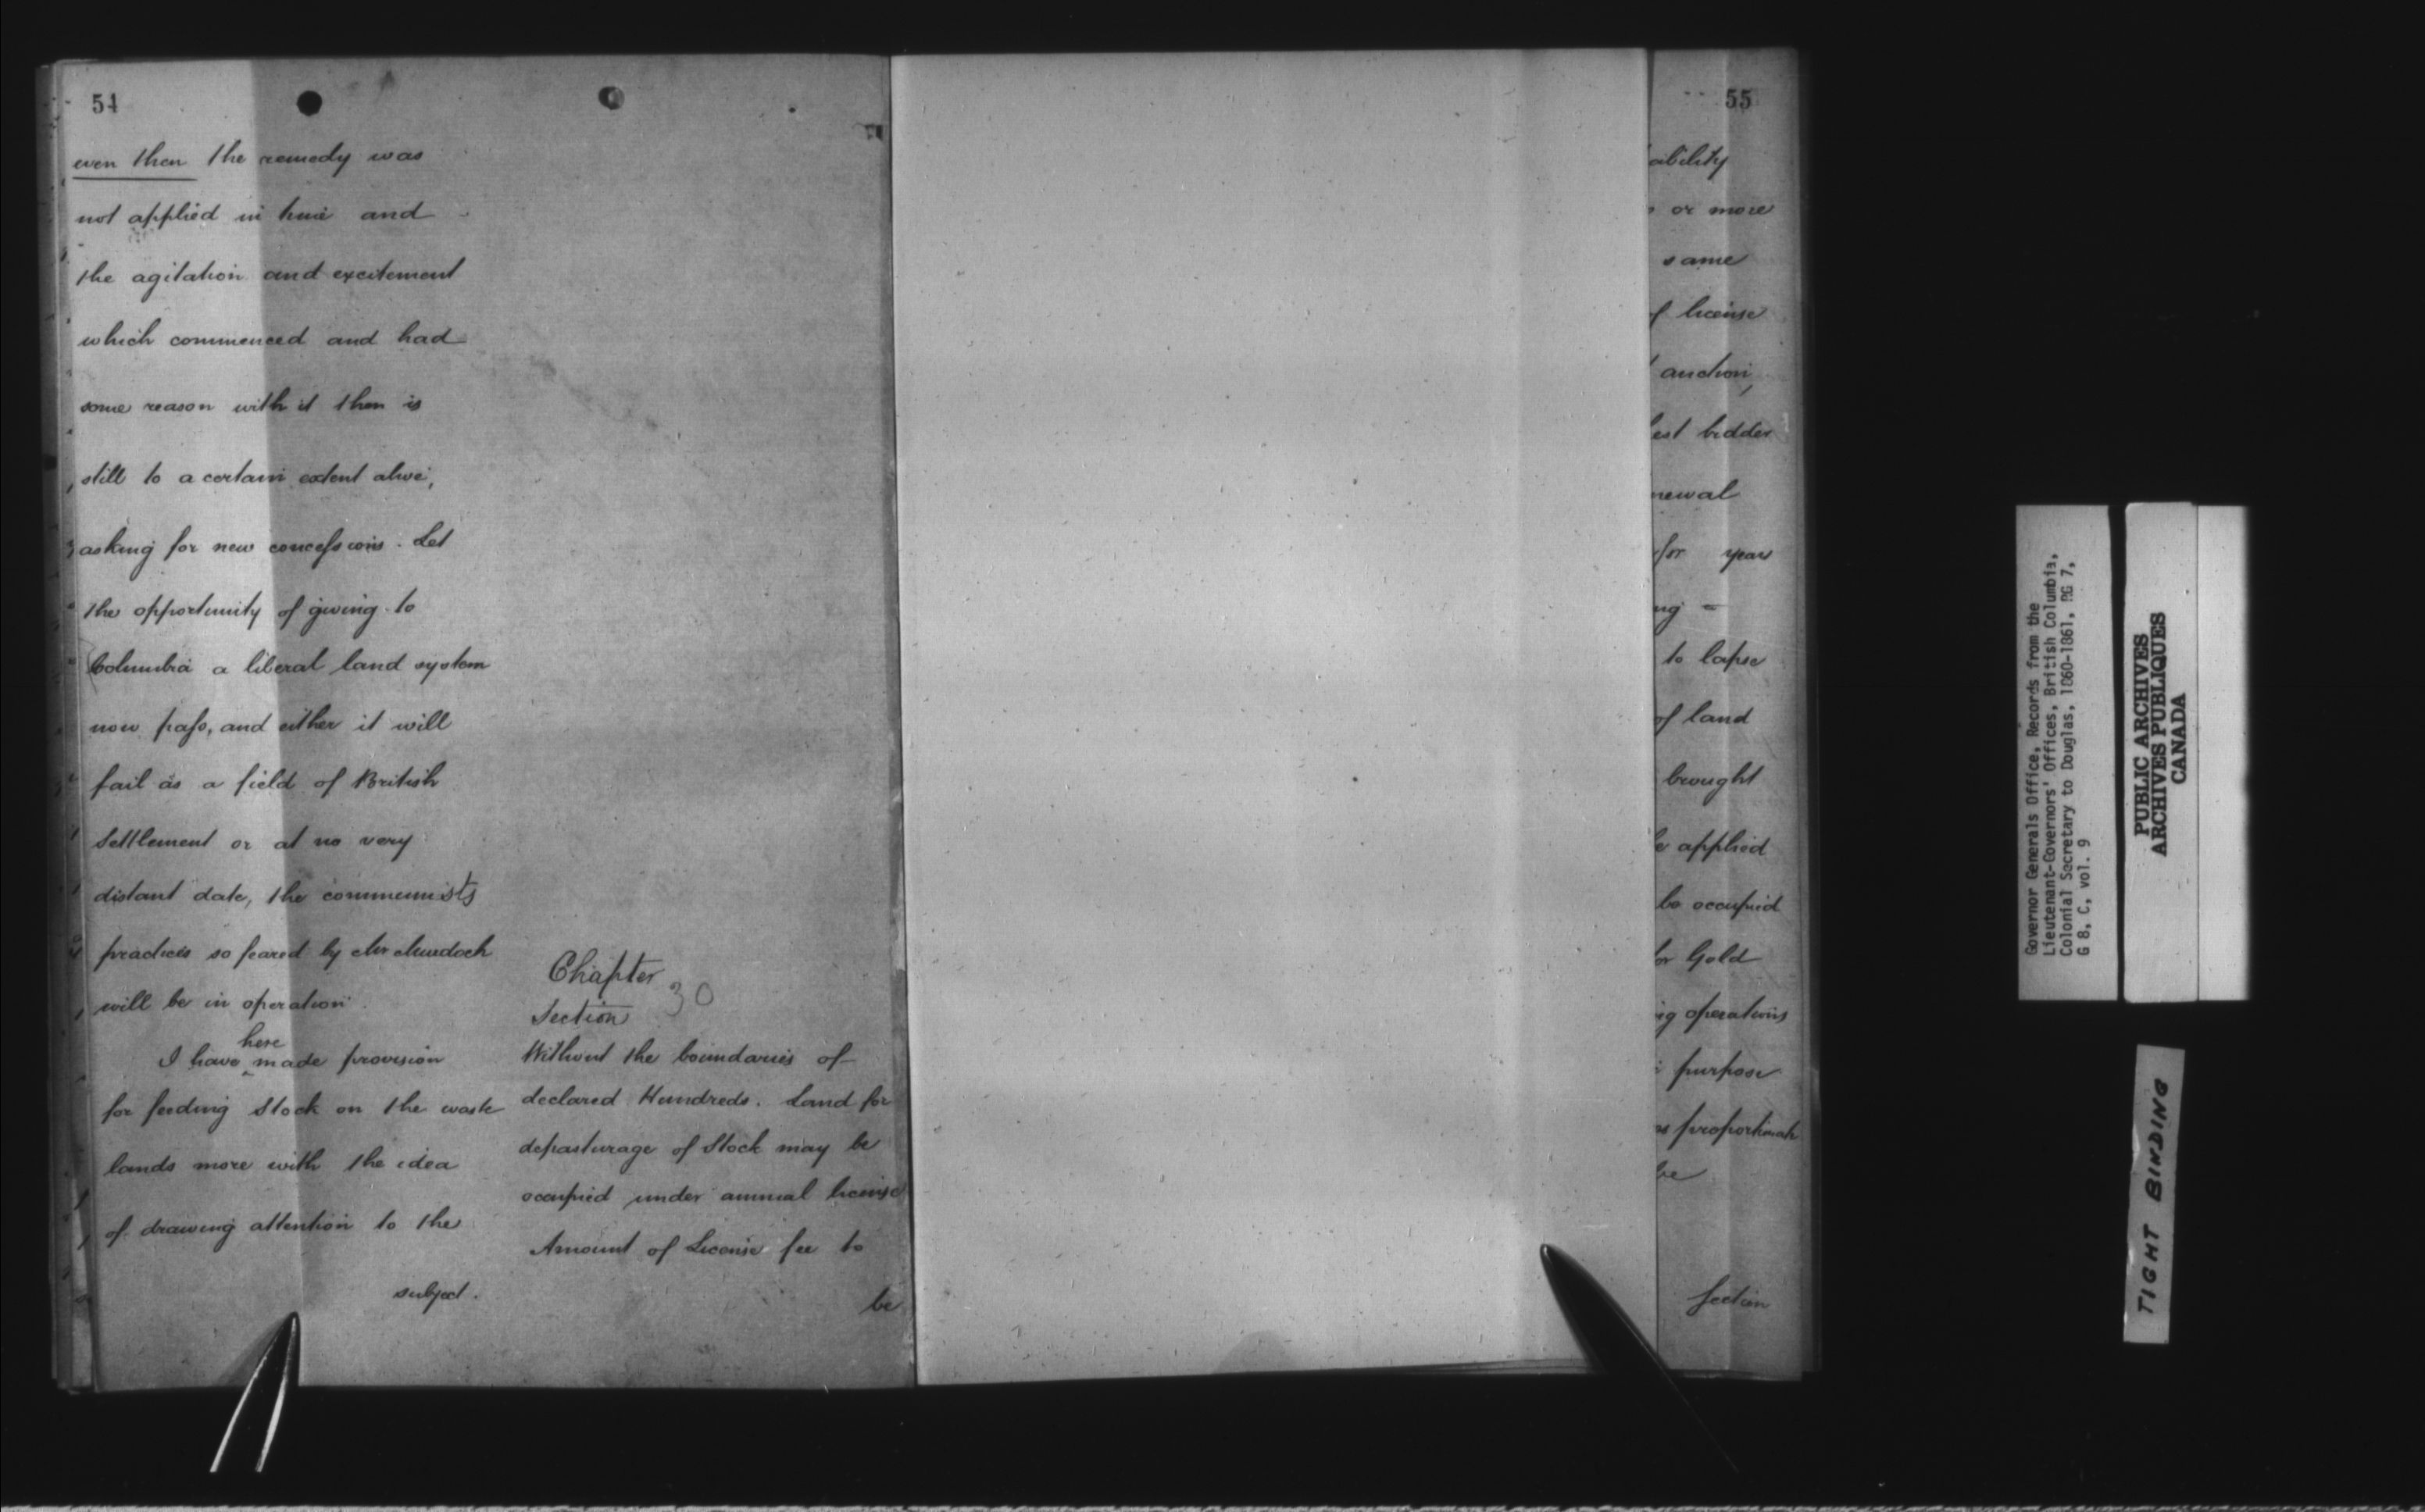 54
even then the remedy was
not applied in time and
the agitation and excitement
which commenced and had
some reason with it then is
still to a certain extent alive,
asking for new concessions. Let
the opportunity of giving to
Columbia a liberal land system
now pass, and either it will
fail as a field of British
Settlement or at no very
distant date, the communists
practices so feared by Mr Murdoch
will be in operation.
I have here made provision
for feeding Stock on the waste
lands more with the idea
of drawing attention to the
subject.
Chapter
30
Section
Without the boundaries of
declared Hundreds. Land for
depasturage of Stock may be
occupied under annual license
Amount of License fee to
be
55
ability
or more
same
of license
auction,
est bidder
newal
for years
ng =
to lapse
of land
brought
applied
be occupied
or Gold
ng operations
purpose
proportionate
be
Section
Governor Generals Office, Records from the
Lieutenant-Governors' Offices, British Columbia,
Colonial Secretary to Douglas, 1860-1861, RG 7,
G 8, C, vol. 9
PUBLIC ARCHIVES
ARCHIVES PUBLIQUES
CANADA
TIGHT BINDING